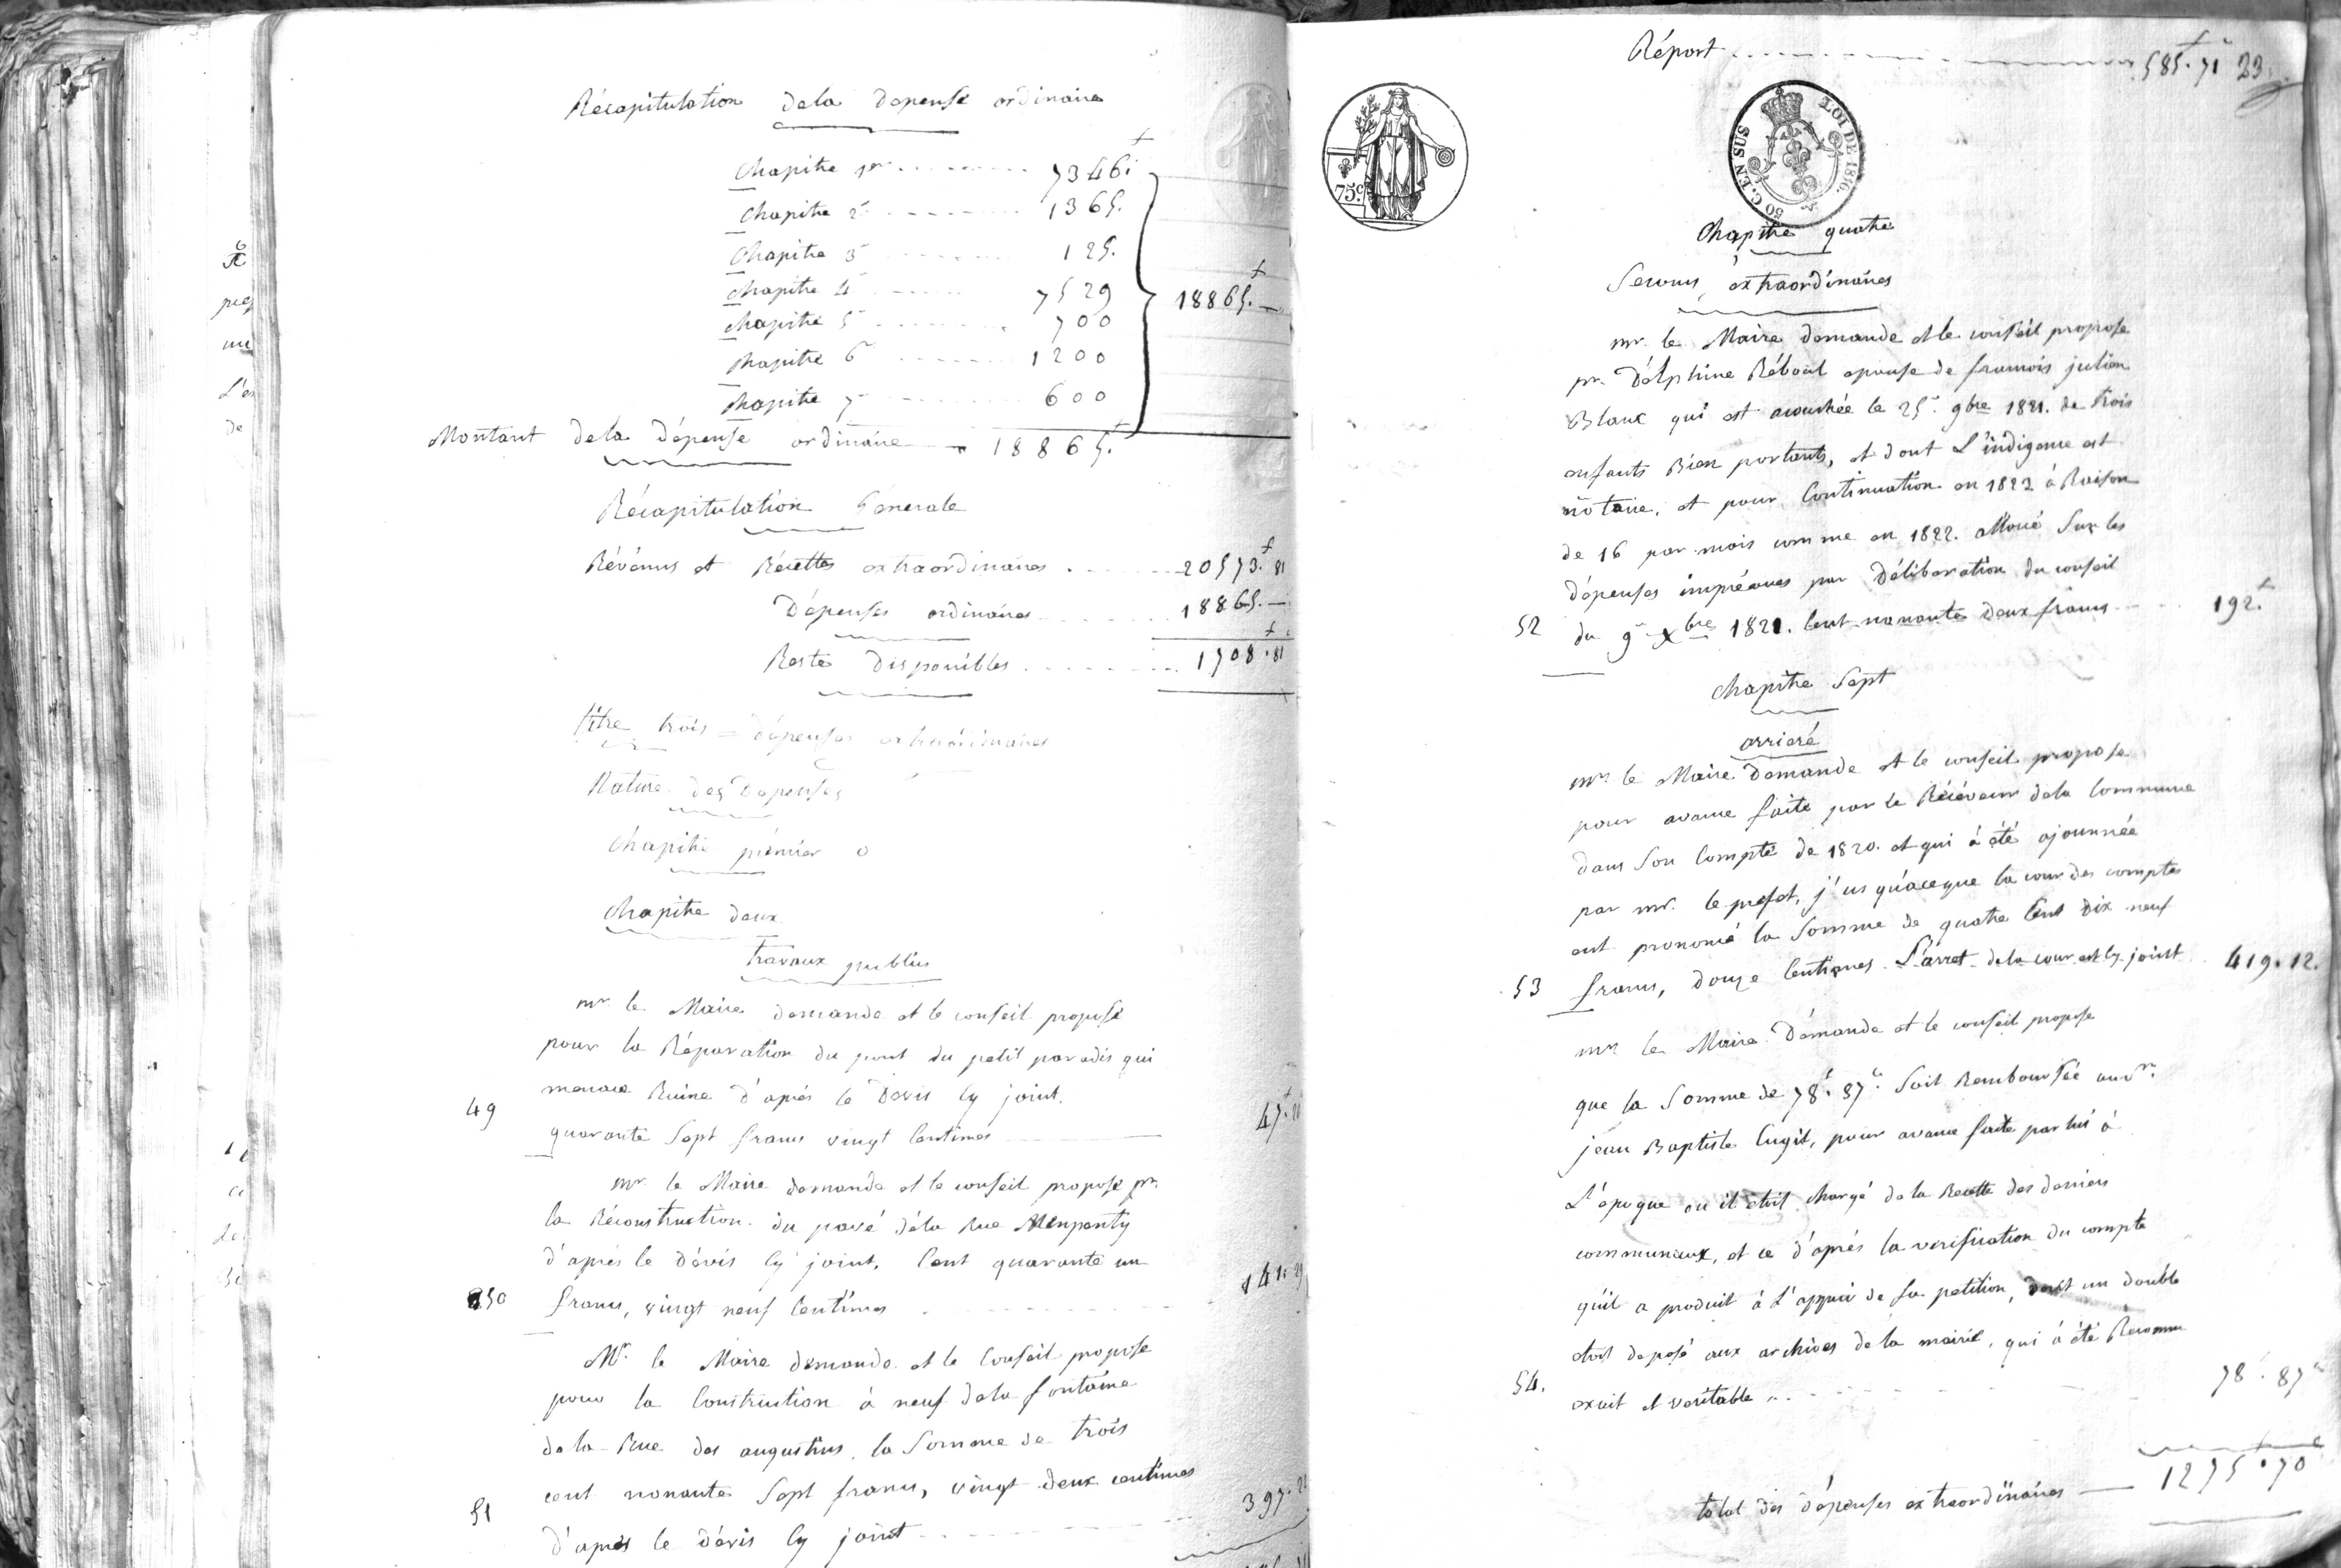 Récapitulation dela depense ordinaire
Chapitre 1er 7346f
Chapitre 2e 1365.
Chapitre 3e 125.
Chapitre 4e 7529
Chapitre 5e 700
Chapitre 6e 1200
Chapitre 7e 600
18865.f —
Montant dela dépense ordinaire — 18865.f
Récapitulation Génerale
Révénus et Récettes extraordinaires . 20573.f 81
Dépenses ordinaires 18865. —
Reste disponibles 1708.f 81
titre trois = dépenses extraordinaires
Nature des Depenses
Chapitre prémier 0
Chapitre deux
travaux publics
mr. le Maire demande et le conseil propose
pour la Réparation du pont du petit paradis qui
menace Ruine d'aprés le Devis cy joint.
49 quarante Sept francs vingt Centimes 47.f 20
mr. le Maire demande et le conseil propose pr.
la Réconstruction du pavé déla Rue Menpenty
d'aprés le Dévis cy joint, Cent quarante un
50 francs, vingt neuf Centimes 141. 29
Mr. le Maire demande et le Conseil propose
pour la Construction à neuf dela fontaine
dela Rue des augustins, la Somme de trois
cent nonante Sept francs, vingt deux centimes
51 d'aprés le dévis cy joint 397. 22
Réport 585.f 71 23
75c.
50 C. EN SUS LOI DE 1816.
Chapitre quatre
Secours extraordinaires
mr. le Maire demande et le conseil propose
pr. Délphine Réboul epouse de francois julien
Blanc qui est accouchée le 25e. 9bre 1821. de trois
enfants Bien portants, et dont L'indigence est
nottoire, et pour Continuation en 1823 à Raison
de 16 par mois comme en 1822. alloué Sur les
dépenses imprévues par Délibération du conseil
52 du 9e Xbre 1821. Cent nonante deux francs 192.f
Chapitre Sept
arrieré
mr. le Maire demande et le conseil propose
pour avance faite par le Récéveur dela Commune
dans Son Compte de 1820. et qui à été ajournée
par mr. le prefet, j'usqu'aceque la cour des comptes
eut prononcé la Somme de quatre Cent dix neuf
53 francs, douze Centimes. L'arret dela cour est cy joint 419.12.
mr. le Maire Démande et le conseil propose
que la Somme de 78f. 87c. Soit Remboursée au sr.
jean Baptiste Cugit, pour avance faite par lui à
L'époque ou il étoit chargé dela Recette des deniers
communaux, et ce d'aprés la verification du compte
qu'il a produit à L'appui de sa petition, dont un double
étoit deposé aux archives dela mairie, qui à été Réconnu
54. exact et veritable 78.f 87c
total des dépenses extraordinaires — 1275.f 70c